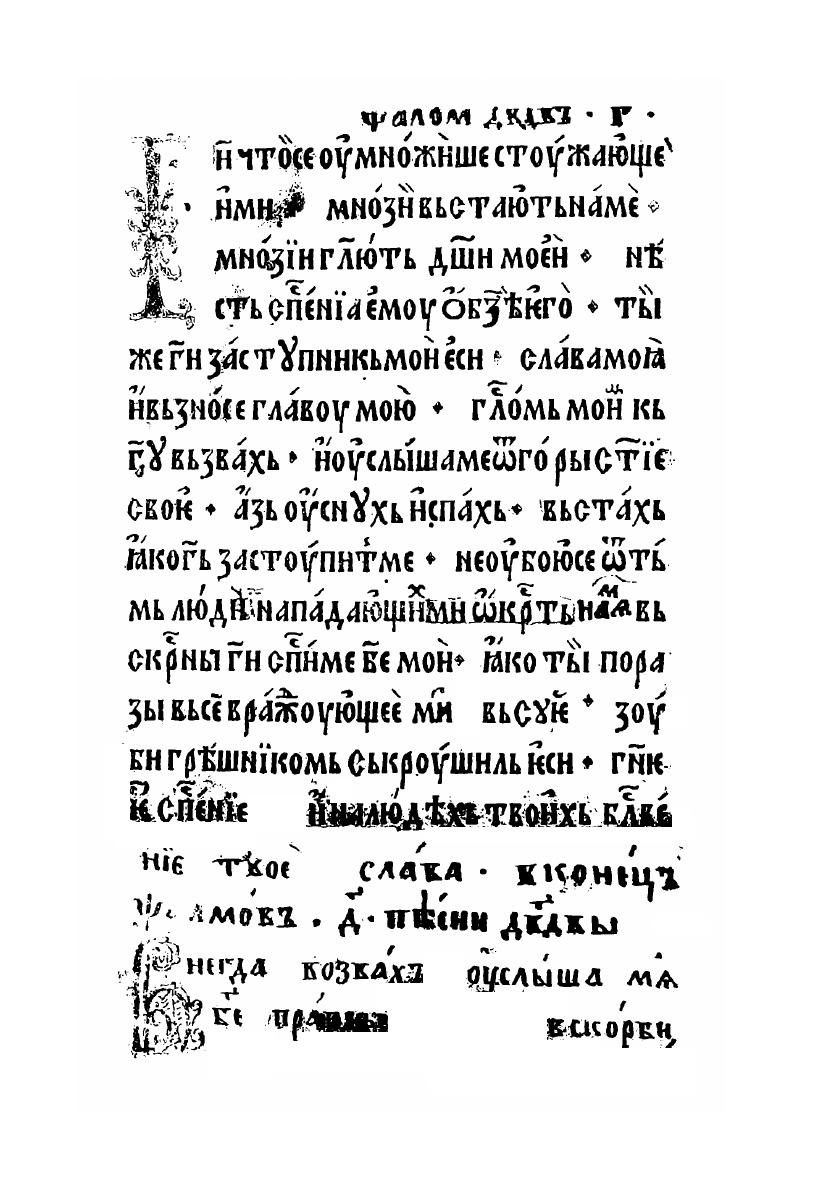 ѱалом дв҃двъ · г҃ ·
Г҃и что̀се оу҆мно́жи́ше стоу́жаю́ще
и҆ми мно́зѝ вьстаю́тьна́мѐ
мно́зїи гл҃ю́ть дш҃и моѐи · нѣ́
сть сп҃се́нїа е҆моу ѡ҆бз҃ѣ є҆гѐ · ты̀
же г҃и за́стꙋпникь мо̀и е҆си · сла́ва моꙗ̀
и҆ вьзно́се гла́воу мою̀ · гл҃со́мь мои҆м кь
гс҃ꙋ вьзва́хь · и҆ оу҆слы́ша ме ѿго́ры ст҃їе
своѥ̀ · а҆́зь оу҆снꙋхь и҆ спа́хь · вьста́хь
ꙗ҆́ко г҃ь застоу́пит ме · не оу҆бою́се ѿ ть
мь лю́дїи напа́дающи́х ми ѡ҆кр҃ть на мѧ вь
скр҃ни г҃и сп҃си́ ме б҃е мо̀и · ꙗ҆́ко ты̀ пора
зы вьсѐ вра́ждоую҆щеѐ ми вьсꙋѥ · зоу́
би грѣ́шнїкомь ськроу́шиль ѥ҆си · гн҃ѥ
ѥ сп҃се́нїе и҆ на лю́дѣхь твои́хь бл҃ве́
нїе твоѐ сла́ва · в конец́ъ
ѱаломо́въ · д҃ · пѣ́сни дв҃двы
Внегда возва́хъ оу҆слы́ша мѧ
б҃е пра́ в ско́рби,